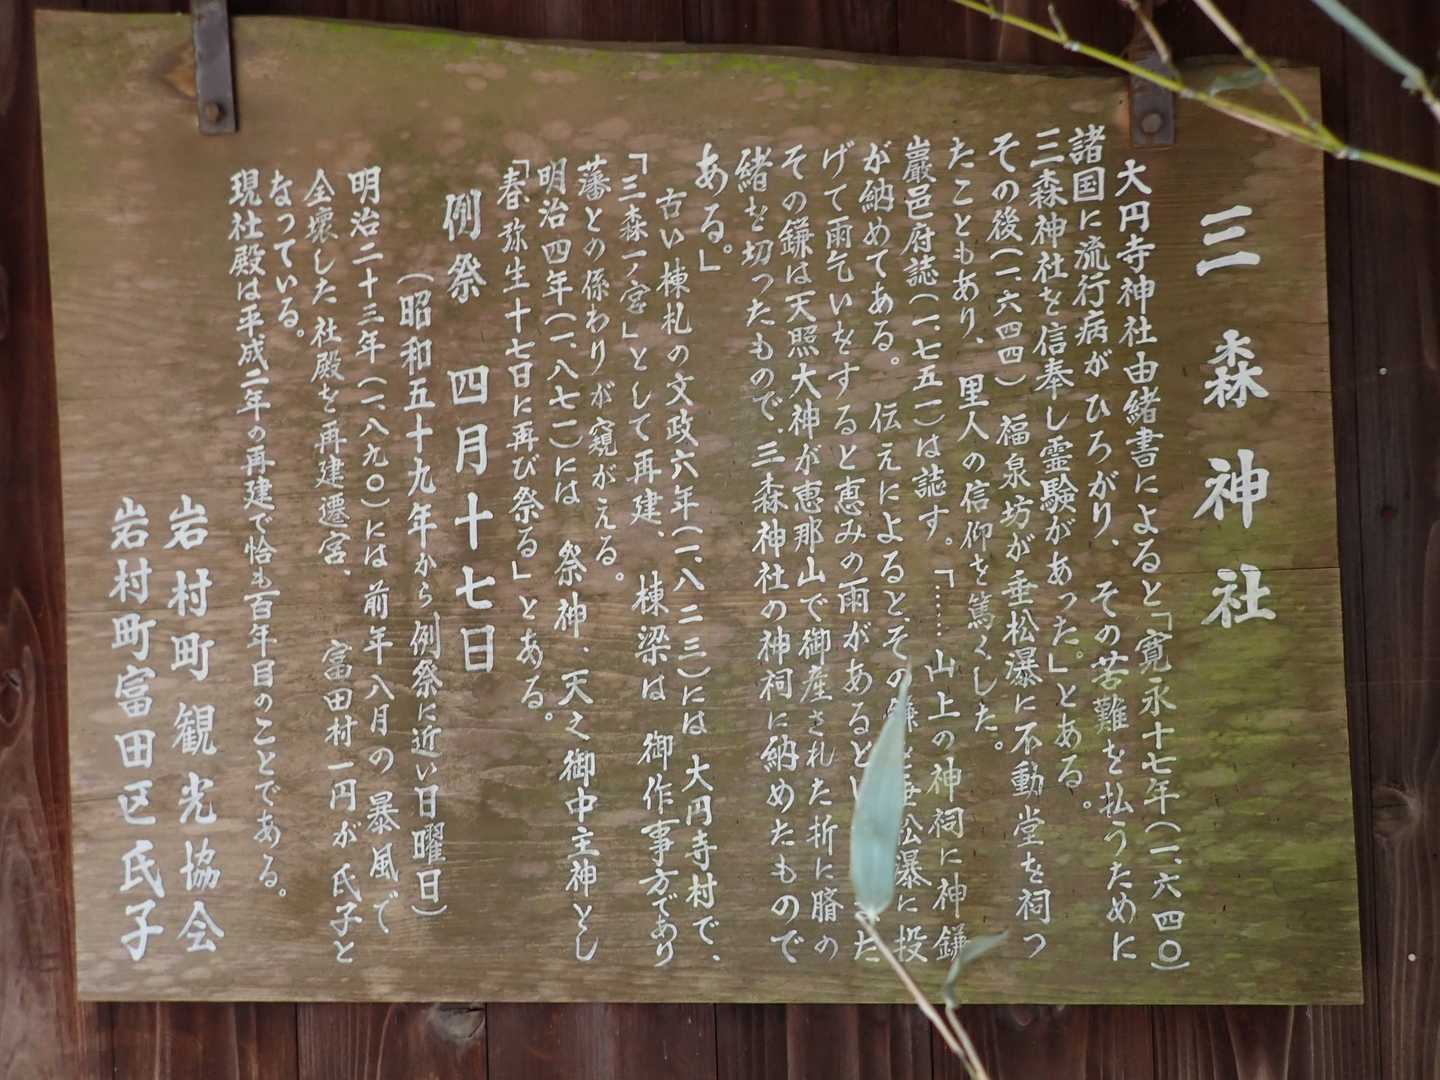 三森神社
大円寺神社由緒書によると「寛永十七年(一、六四〇)
諸国に流行病がひろがり、その苦難を払うために
三森神社を信奉し霊験があった。」とある。
その後(一、六四四)福泉坊が垂松瀑に不動堂を祠っ
たこともあり、里人の信仰を篤くした。
巖邑府誌(一、七五一)は誌す。「……山上の神祠に神鎌
が納めてある。伝えによると、その鎌を垂松瀑に投
げて雨乞いをすると恵みの雨があるといった
その鎌は天照大神が恵那山で御産された折に臍の
緒を切ったもので、三森神社の神祠に納めたもので
ある。」
古い棟札の文政六年(一、八二三)には大円寺村で、
「三森一ノ宮」として再建、棟梁は御作事方であり
藩との係わりが窺がえる。
明治四年(一、八七一)には祭神、天之御中主神とし
「春弥生十七日に再び祭る」とある。
例祭 四月十七日
(昭和五十九年から例祭に近い日曜日)
明治二十三年(一、八九〇)には前年八月の暴風で
全壊した社殿を再建遷宮、富田村一円が氏子と
なっている。
現社殿は平成二年の再建で恰も百年目のことである。
岩村町観光協会
岩村町富田区氏子